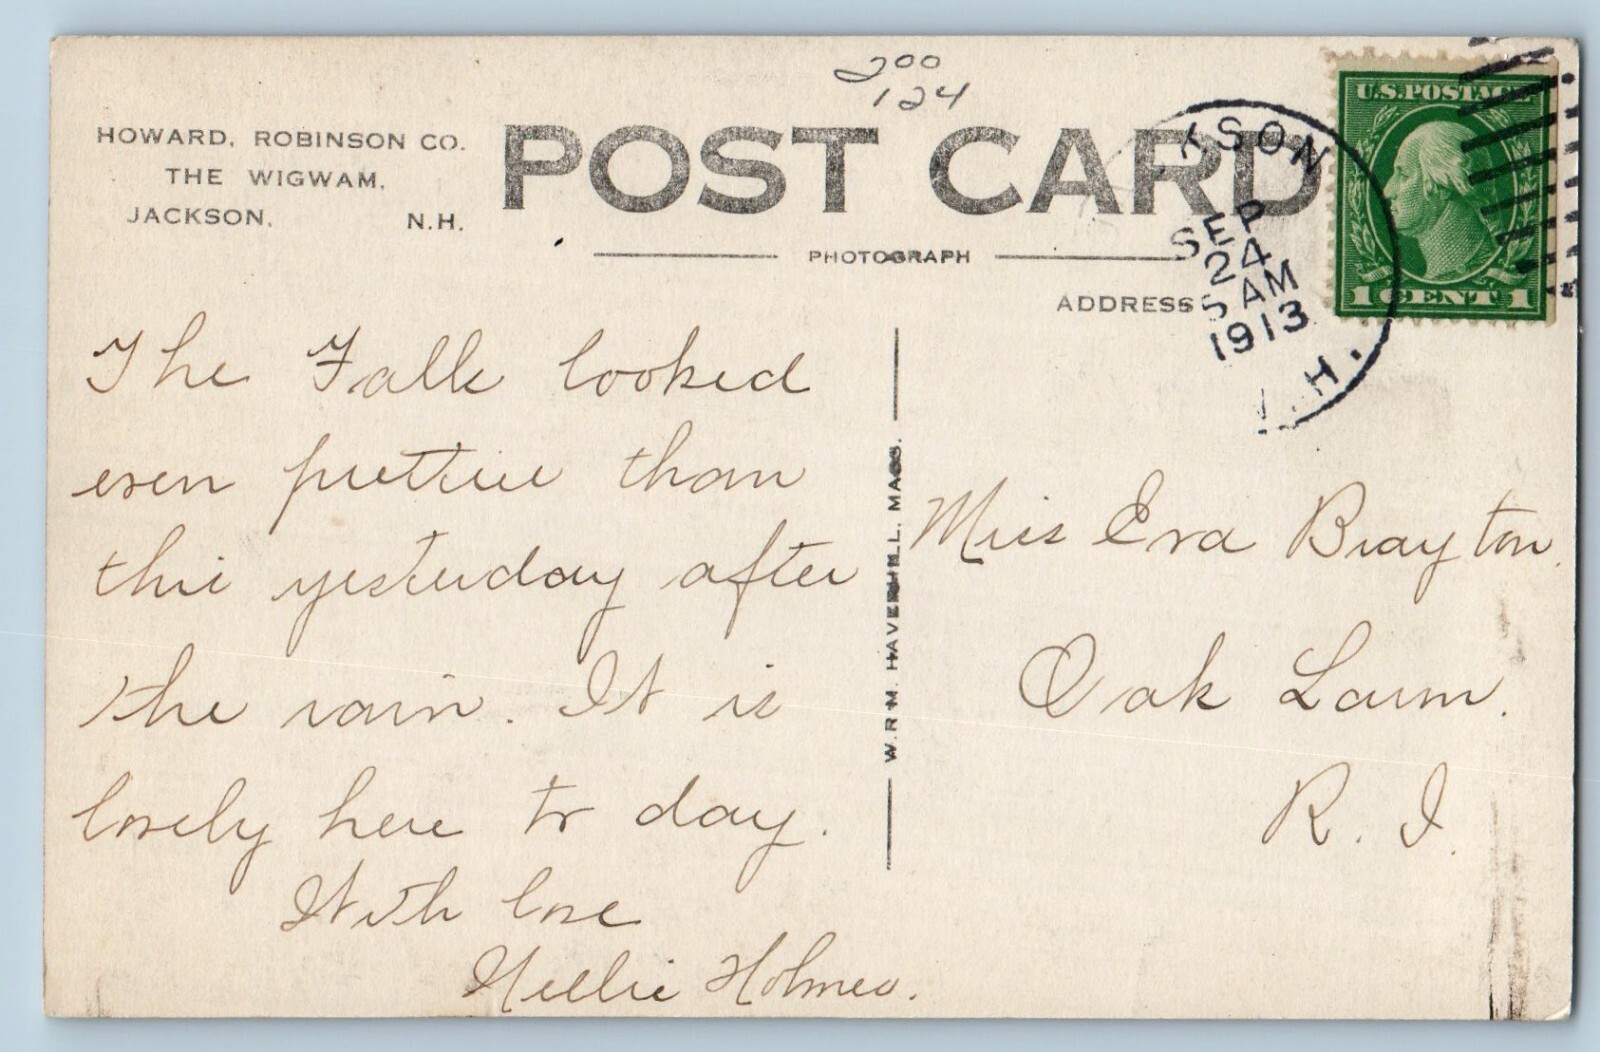 200
124
HOWARD, ROBINSON CO.
THE WIGWAM.
JACKSON, N.H.
POST CARD
PHOTOGRAPH
ADDRESS
KSON
SEP
24
5 AM
1913
N.H.
U.S. POSTAGE
1 CENT 1
The Falls looked
even prettier than
this yesterday after
the rain. It is
lovely here to day.
With love
Nellie Holmes.
W.R.M. HAVERHILL. MASS.
Miss Eva Brayton.
Oak Lawn.
R. I.